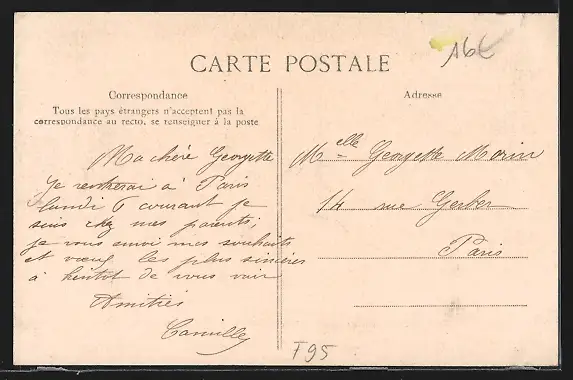 16€
CARTE POSTALE
Correspondance
Tous les pays étrangers n'acceptent pas la
correspondance au recto. se renseigner à la poste
Ma chère Georgette
Je rentrerai à Paris
lundi 6 courant je
suis chez mes parents,
je vous envoi mes souhaits
et vœux les plus sincères
à bientot de vous voir
Amitiés
Camille
Adresse
Melle Georgette Morin
14 rue Gerber
Paris
T95